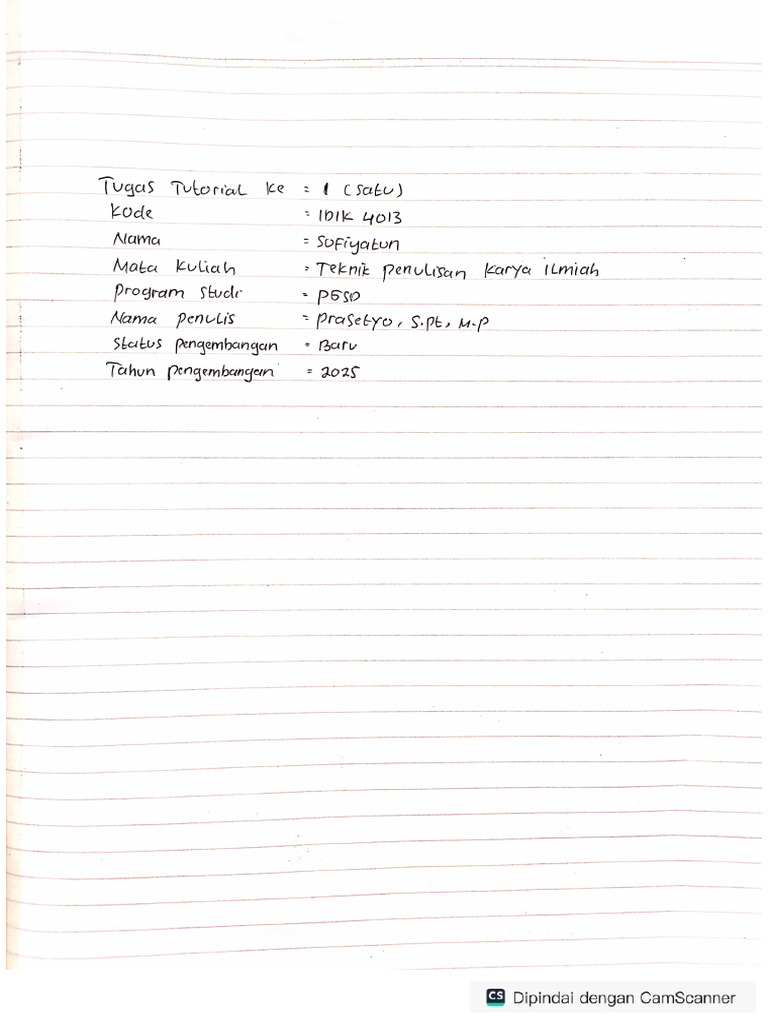 Tugas Tutorial ke = 1 (satu)
Kode = IDIK 4013
Nama = Sofiyatun
Mata Kuliah = Teknik penulisan karya ilmiah
Program Studi = PGSD
Nama penulis = Prasetyo, S.Pt, M.P
Status pengembangan = Baru
Tahun pengembangan = 2025
CS Dipindai dengan CamScanner